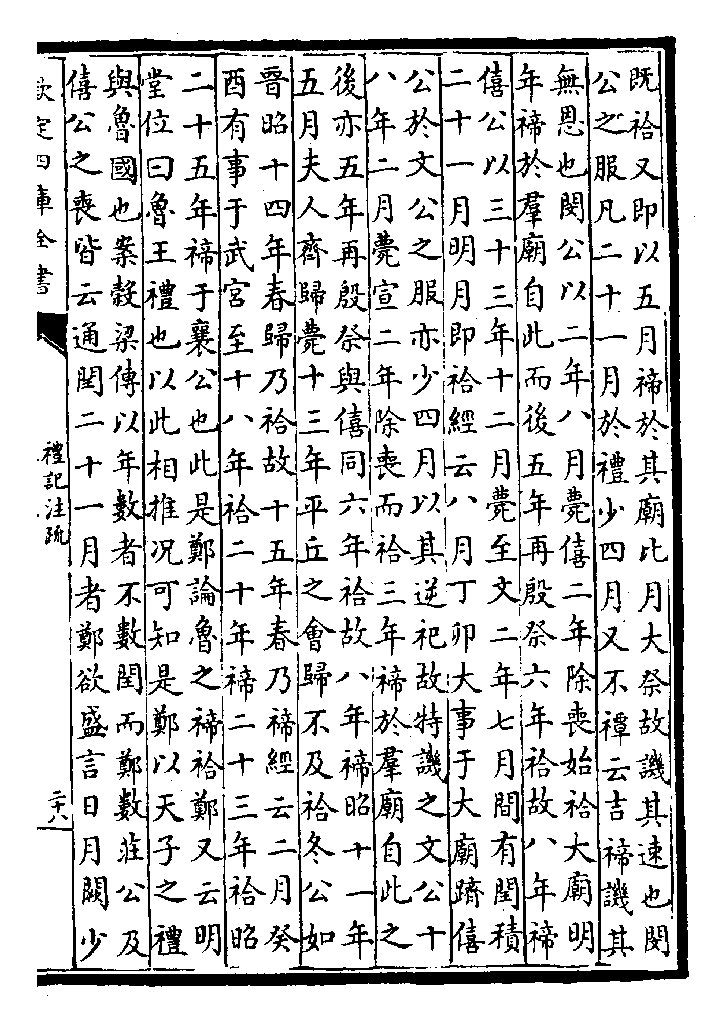 既祫又即以五月禘於其廟比月大祭故譏其速也閔
公之服凡二十一月於禮少四月又不禫云吉禘譏其
無恩也閔公以二年八月薨僖二年除喪始祫大廟明
年禘於羣廟自此而後五年再殷祭六年祫故八年禘
僖公以三十三年十二月薨至文二年七月間有閏積
二十一月明月即祫經云八月丁卯大事于大廟躋僖
公於文公之服亦少四月以其逆祀故特譏之文公十
八年二月薨宣二年除喪而祫三年禘於羣廟自此之
後亦五年再殷祭與僖同六年祫故八年禘昭十一年
五月夫人齊歸薨十三年平丘之會歸不及祫冬公如
晉昭十四年春歸乃祫故十五年春乃禘經云二月癸
酉有事于武宮至十八年祫二十年禘二十三年祫昭
二十五年禘于襄公也此是鄭論魯之禘祫鄭又云明
堂位曰魯王禮也以此相推况可知是鄭以天子之禮
與魯國也案穀梁傳以年數者不數閏而鄭數莊公及
僖公之喪皆云通閏二十一月者鄭欲盛言日月闕少
欽定四庫全書
禮記注疏
二十八